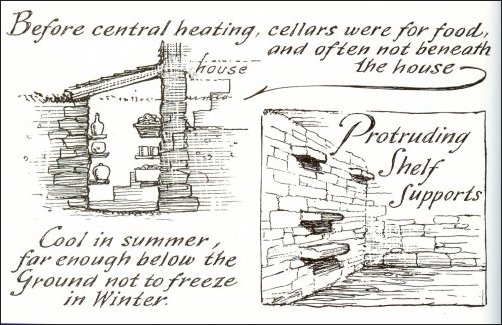 Before central heating, cellars were for food,
and often not beneath
the house
house
Protruding
Shelf
Supports
Cool in summer,
far enough below the
Ground not to freeze
in Winter.